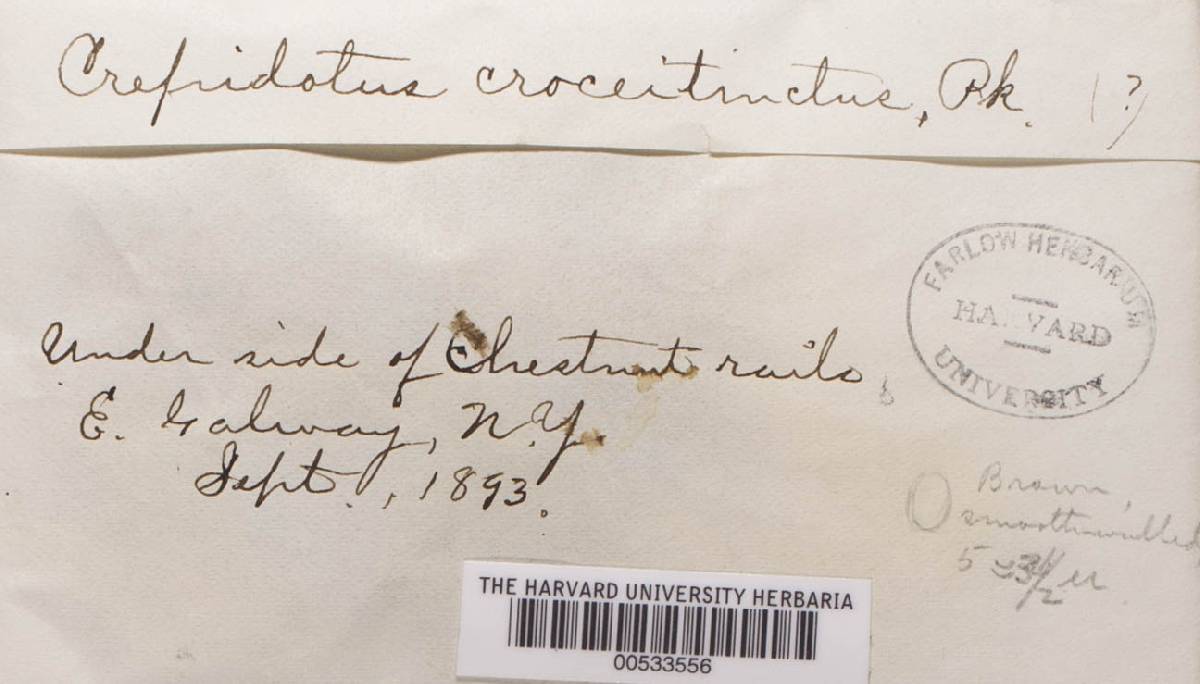 Crepidotus croceitinctus, Pk. (?)
Under side of Chestnut rails,
E. Galway, N.Y.
Sept., 1893.
FARLOW HERBARIUM
HARVARD
UNIVERSITY
Brown,
smooth-walled
5
THE HARVARD UNIVERSITY HERBARIA
00533556